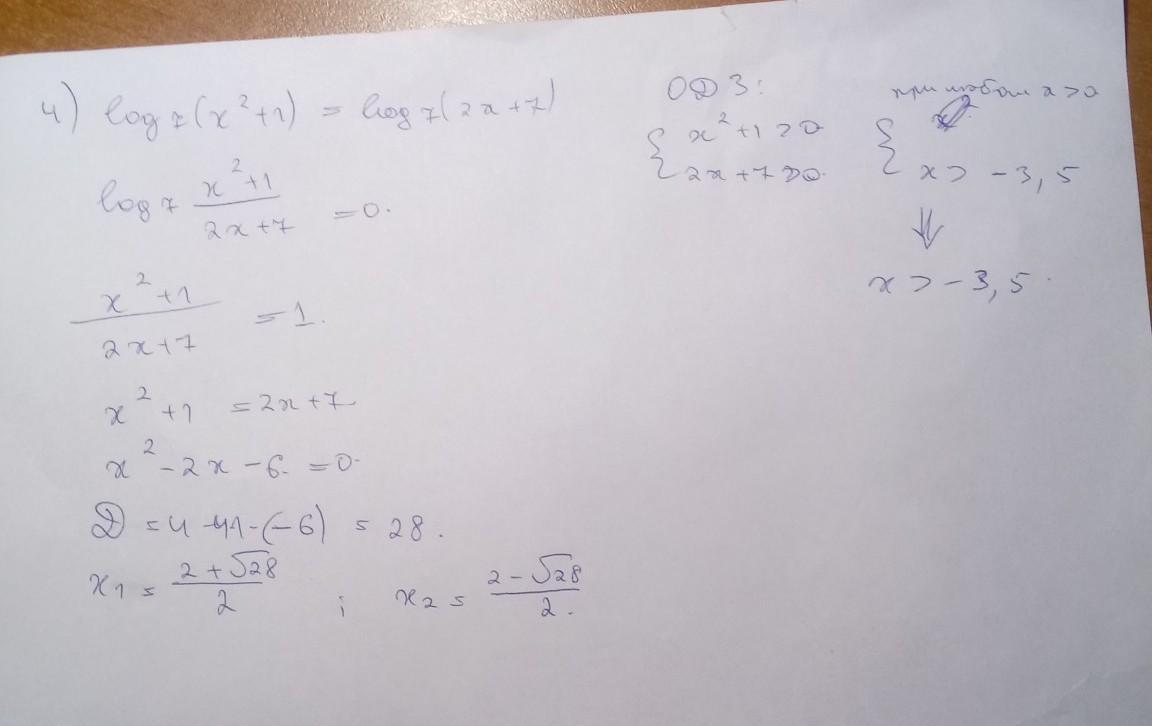 4) log₇(x²+1) = log₇(2x+7)
log₇ (x²+1)/(2x+7) = 0.
(x²+1)/(2x+7) = 1.
x²+1 = 2x+7
x²-2x-6 = 0.
D = 4-4·1·(-6) = 28.
x₁ = (2+√28)/2 ; x₂ = (2-√28)/2.
ОДЗ:
{ x²+1>0
2x+7>0.
при любом x>0
{ x > -3,5
⇓
x > -3,5.